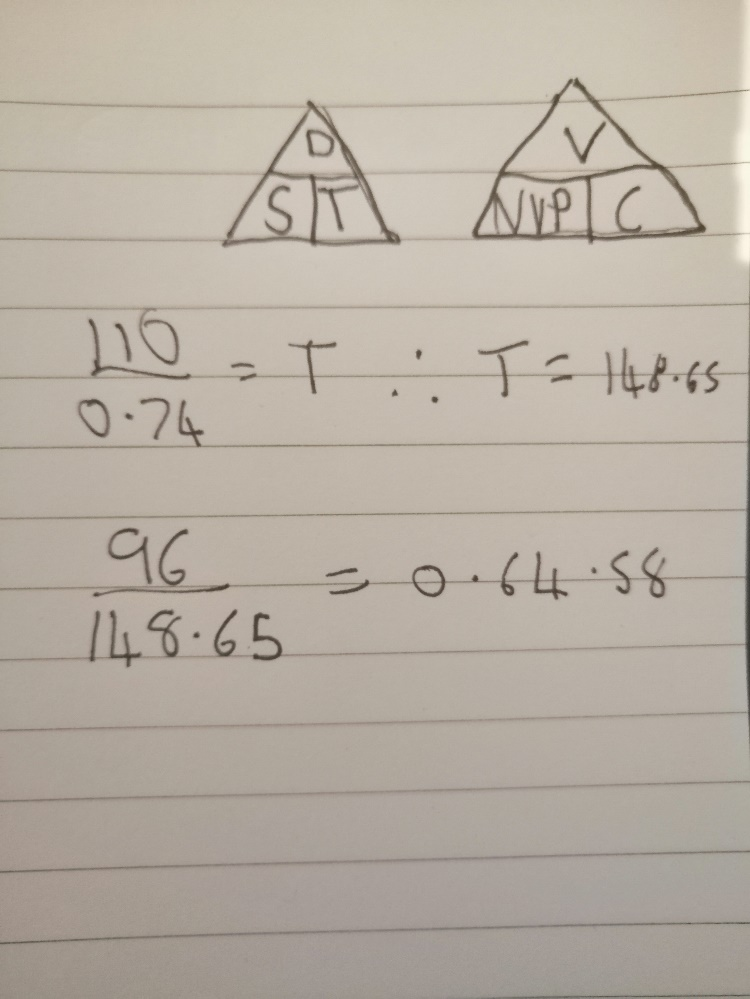 D V
S T NVP C
110
0.74 = T ∴ T = 148.65
96
148.65 = 0.64.58